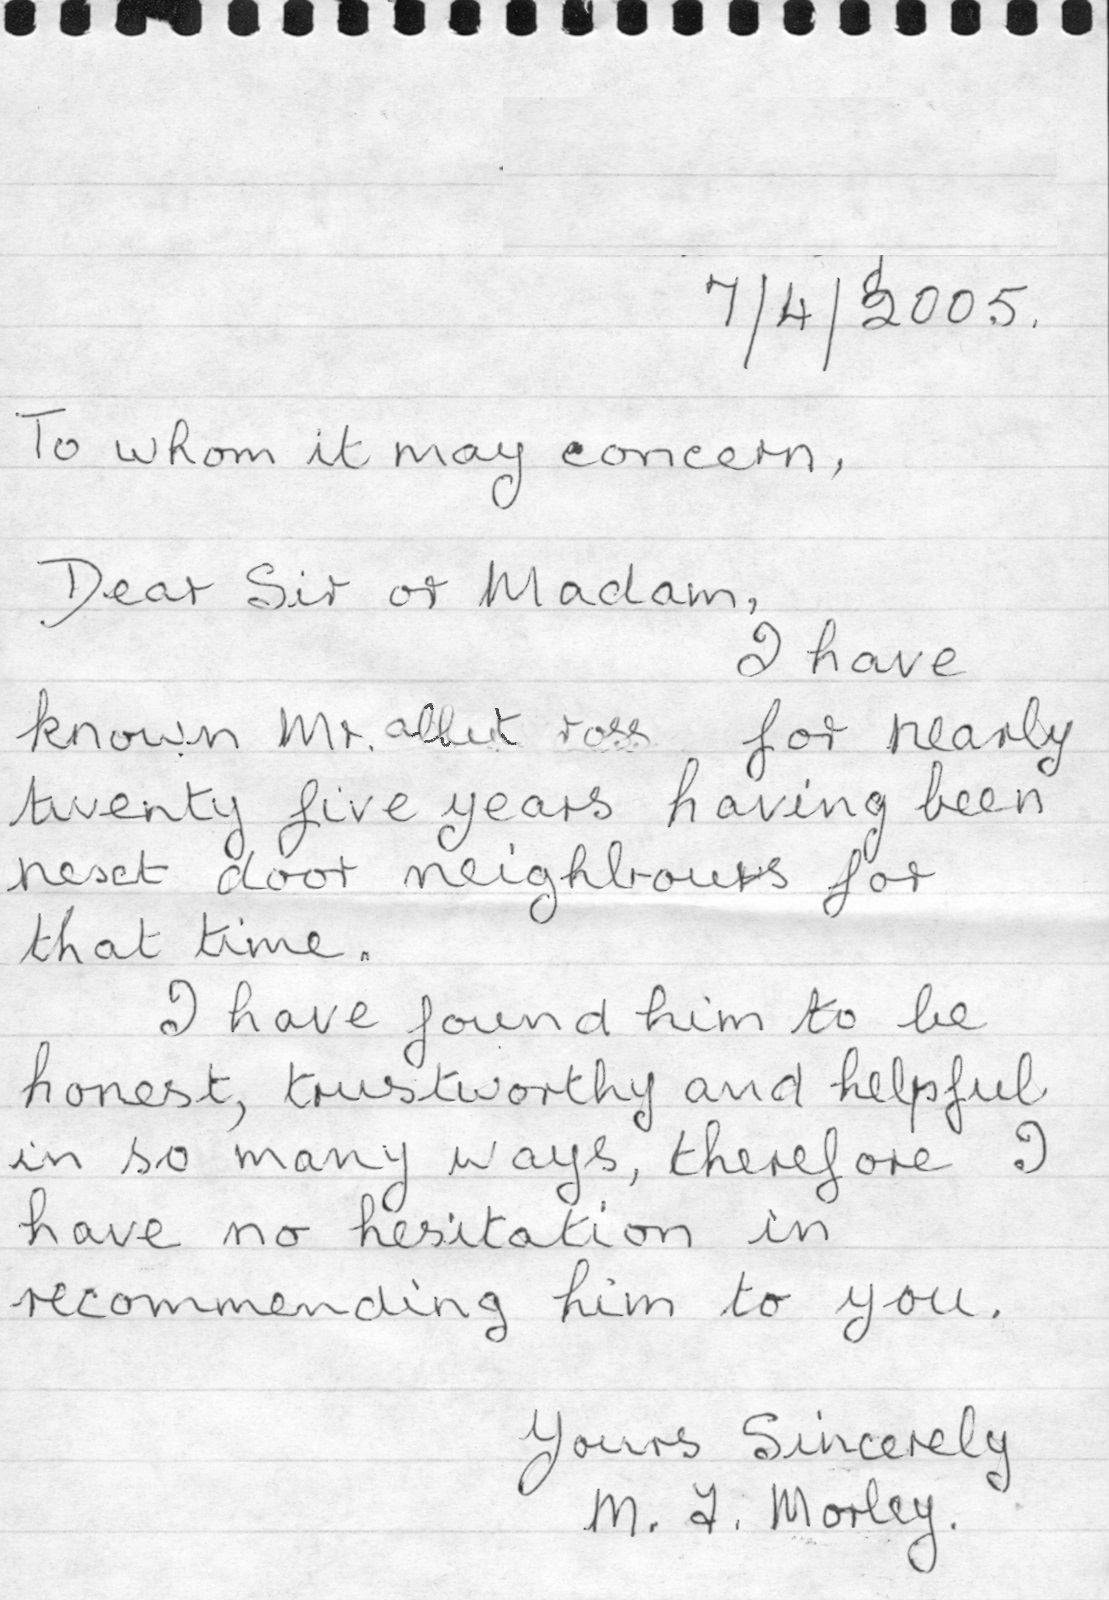 7/4/2005.
To whom it may concern,
Dear Sir or Madam,
I have
known Mr. albert ross for nearly
twenty five years having been
next door neighbours for
that time.
I have found him to be
honest, trustworthy and helpful
in so many ways, therefore I
have no hesitation in
recommending him to you.
Yours Sincerely
M. J. Morley.